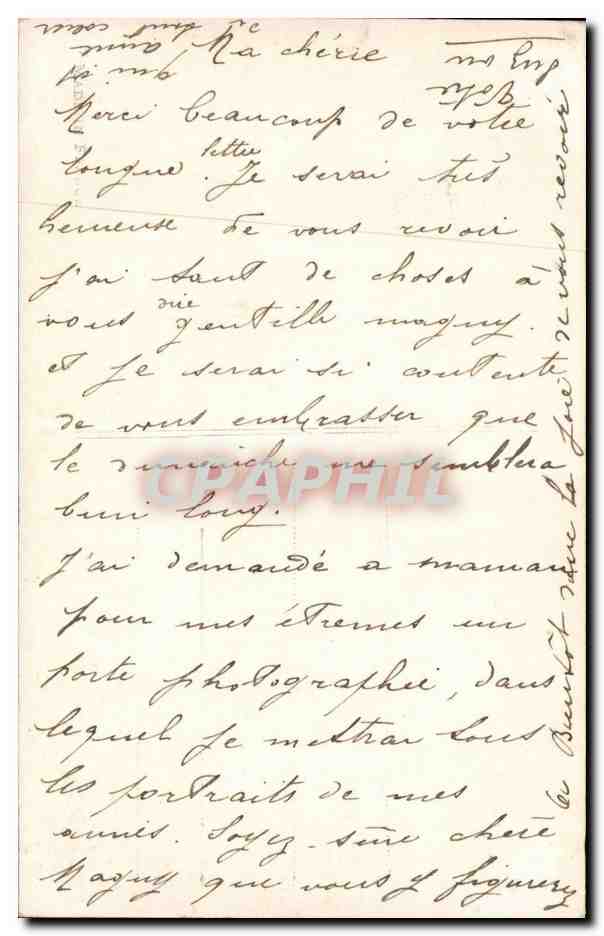 Ma chérie
Merci beaucoup de votre
longue lettre. Je serai très
heureuse de vous revoir
j'ai tant de choses à
vous dire gentille maguy.
et je serai si contente
de vous embrasser que
le dimanche me semblera
bien long.
J'ai demandé a maman
pour mes étrennes un
porte photographie, dans
lequel je mettrai tous
les portraits de mes
amies. Soyez sûre chère
Maguy que vous y figurerez
Bientôt dans la joie de vous revoir
qui
aime
tout coeur
CPAPHIL